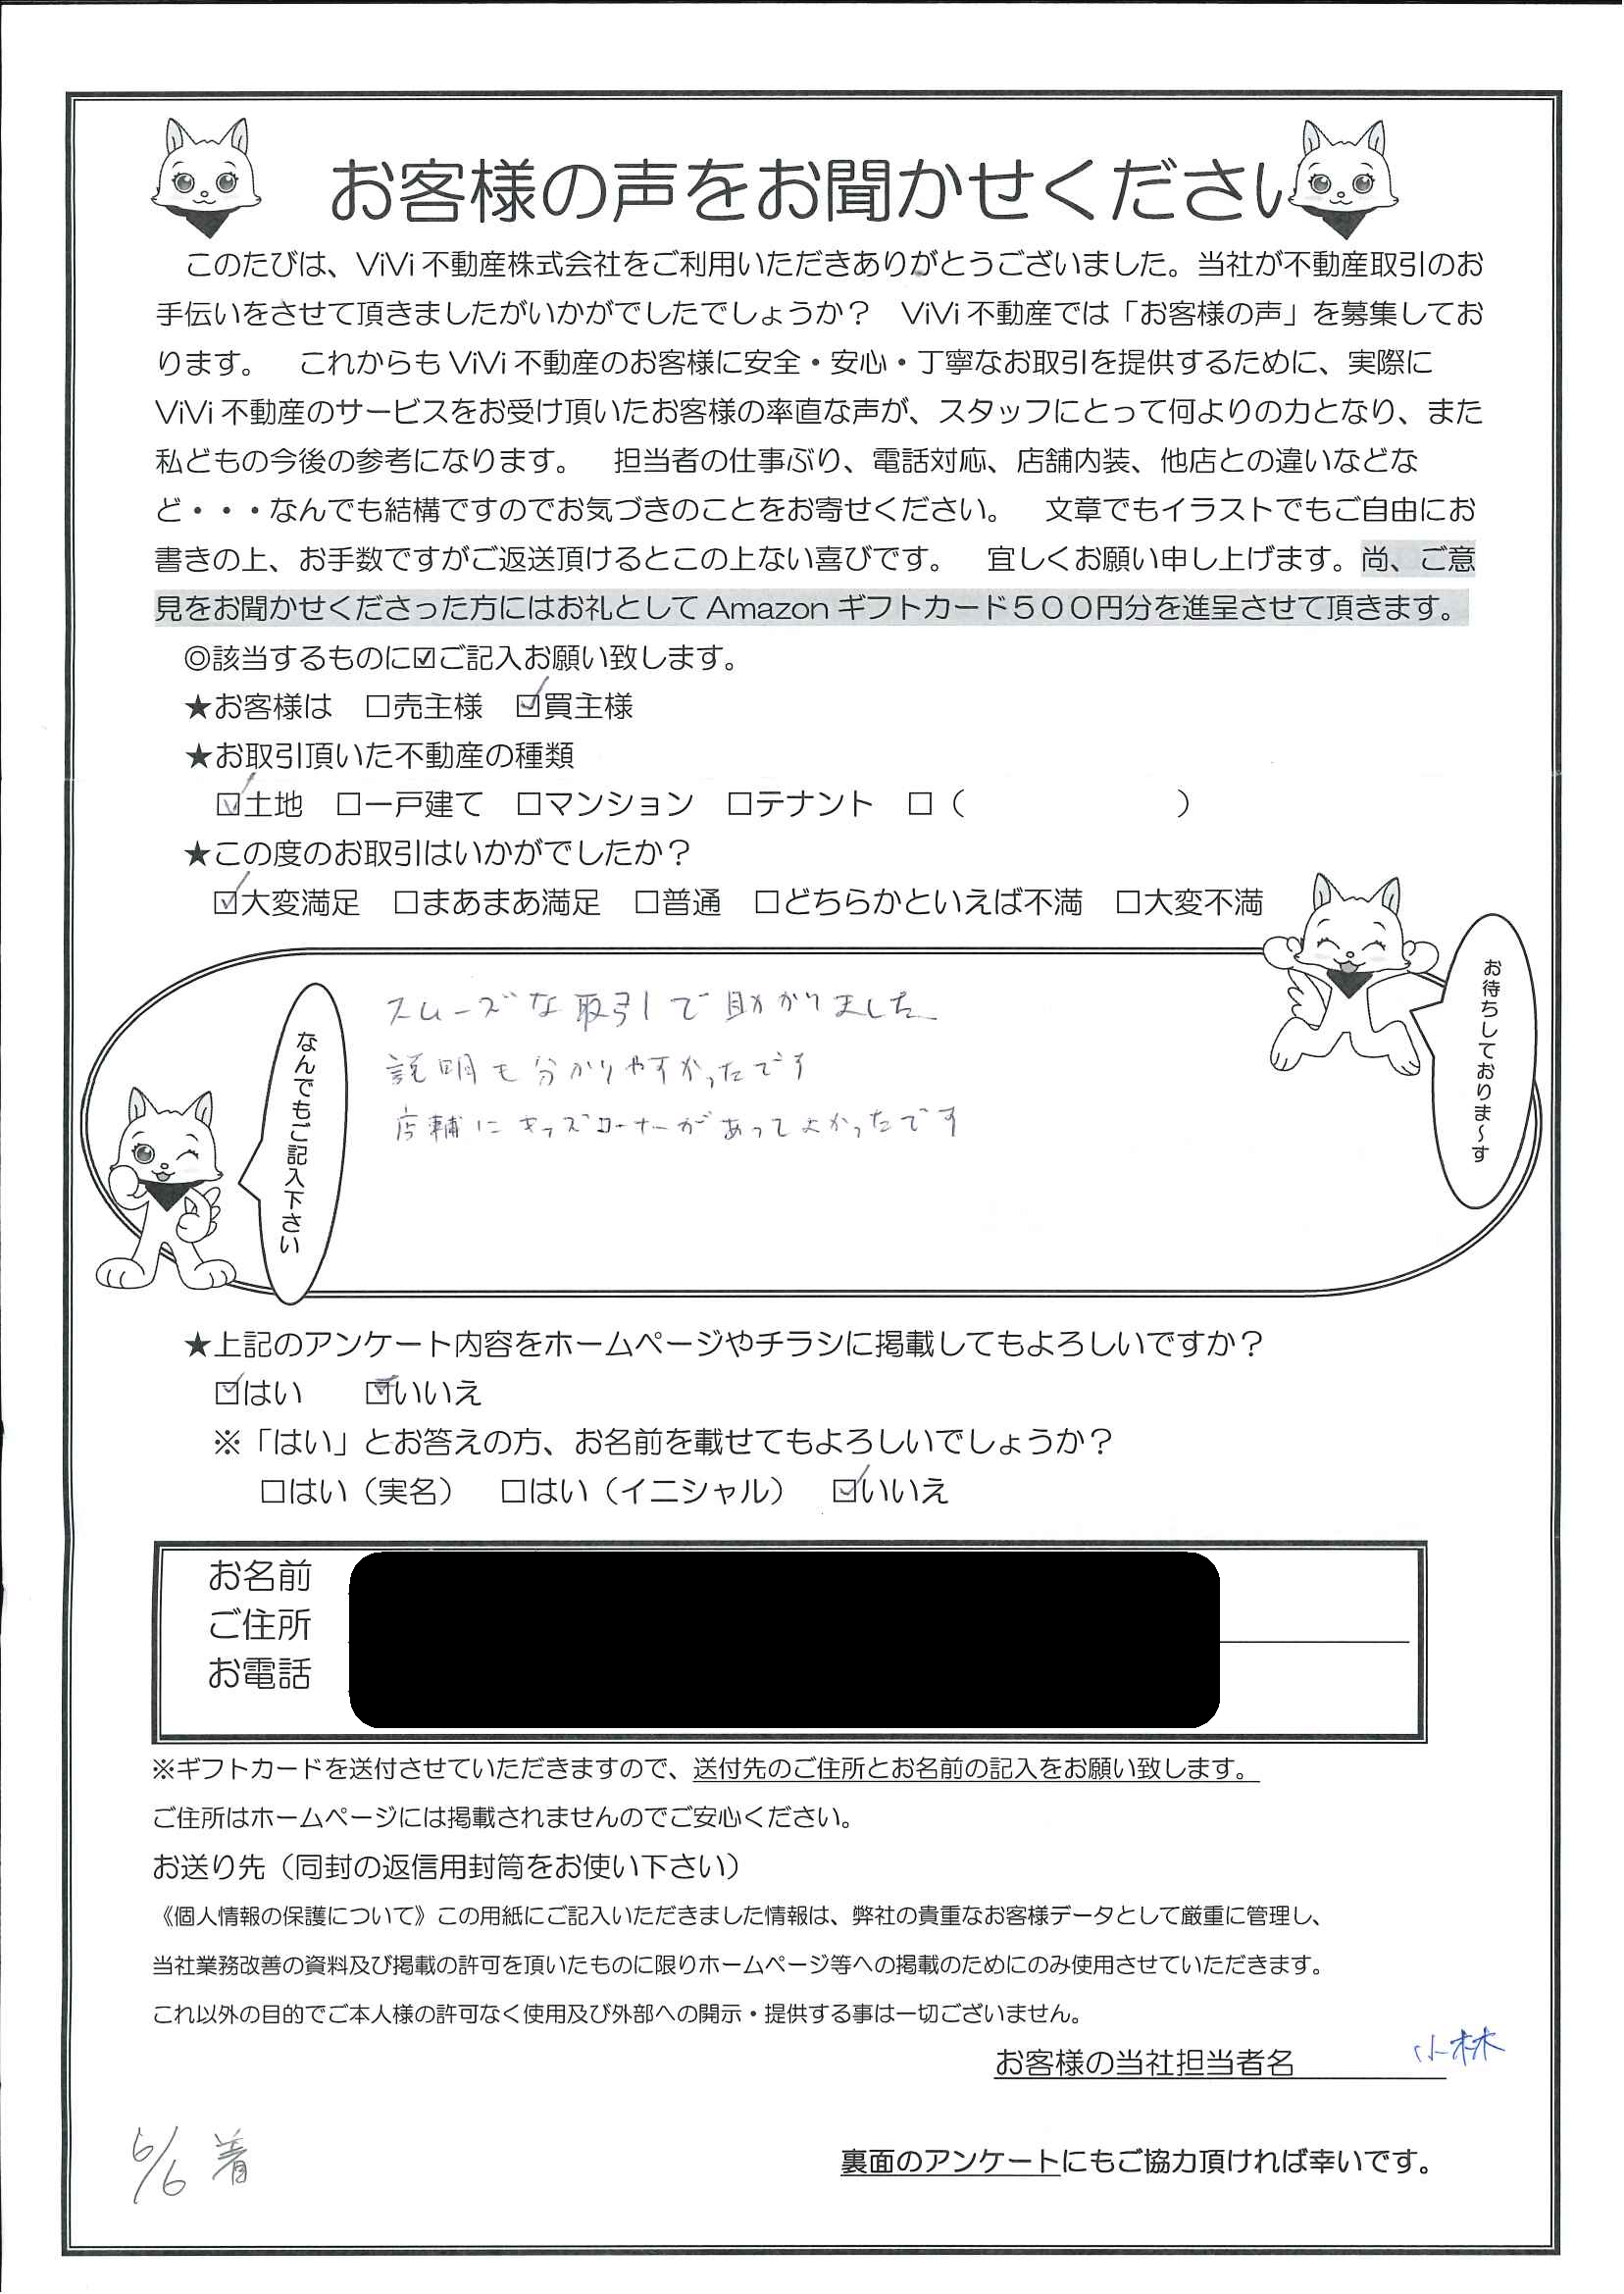 お客様の声をお聞かせください
このたびは、ViVi不動産株式会社をご利用いただきありがとうございました。当社が不動産取引のお
手伝いをさせて頂きましたがいかがでしたでしょうか？　ViVi不動産では「お客様の声」を募集してお
ります。　これからもViVi不動産のお客様に安全・安心・丁寧なお取引を提供するために、実際に
ViVi不動産のサービスをお受け頂いたお客様の率直な声が、スタッフにとって何よりの力となり、また
私どもの今後の参考になります。　担当者の仕事ぶり、電話対応、店舗内装、他店との違いなどな
ど・・・なんでも結構ですのでお気づきのことをお寄せください。　文章でもイラストでもご自由にお
書きの上、お手数ですがご返送頂けるとこの上ない喜びです。　宜しくお願い申し上げます。尚、ご意
見をお聞かせくださった方にはお礼としてAmazonギフトカード５００円分を進呈させて頂きます。
◎該当するものに☑ご記入お願い致します。
★お客様は　□売主様　☑買主様
★お取引頂いた不動産の種類
☑土地　□一戸建て　□マンション　□テナント　□（　　　　　　　）
★この度のお取引はいかがでしたか？
☑大変満足　□まあまあ満足　□普通　□どちらかといえば不満　□大変不満
お待ちしておりま～す
なんでもご記入下さい
スムーズな取引で助かりました
説明も分かりやすかったです
店舗にキッズコーナーがあってよかったです
★上記のアンケート内容をホームページやチラシに掲載してもよろしいですか？
☑はい　　☑いいえ
※「はい」とお答えの方、お名前を載せてもよろしいでしょうか？
□はい（実名）　□はい（イニシャル）　☑いいえ
お名前
ご住所
お電話
※ギフトカードを送付させていただきますので、送付先のご住所とお名前の記入をお願い致します。
ご住所はホームページには掲載されませんのでご安心ください。
お送り先（同封の返信用封筒をお使い下さい）
《個人情報の保護について》この用紙にご記入いただきました情報は、弊社の貴重なお客様データとして厳重に管理し、
当社業務改善の資料及び掲載の許可を頂いたものに限りホームページ等への掲載のためにのみ使用させていただきます。
これ以外の目的でご本人様の許可なく使用及び外部への開示・提供する事は一切ございません。
お客様の当社担当者名　小林
6/6 着
裏面のアンケートにもご協力頂ければ幸いです。